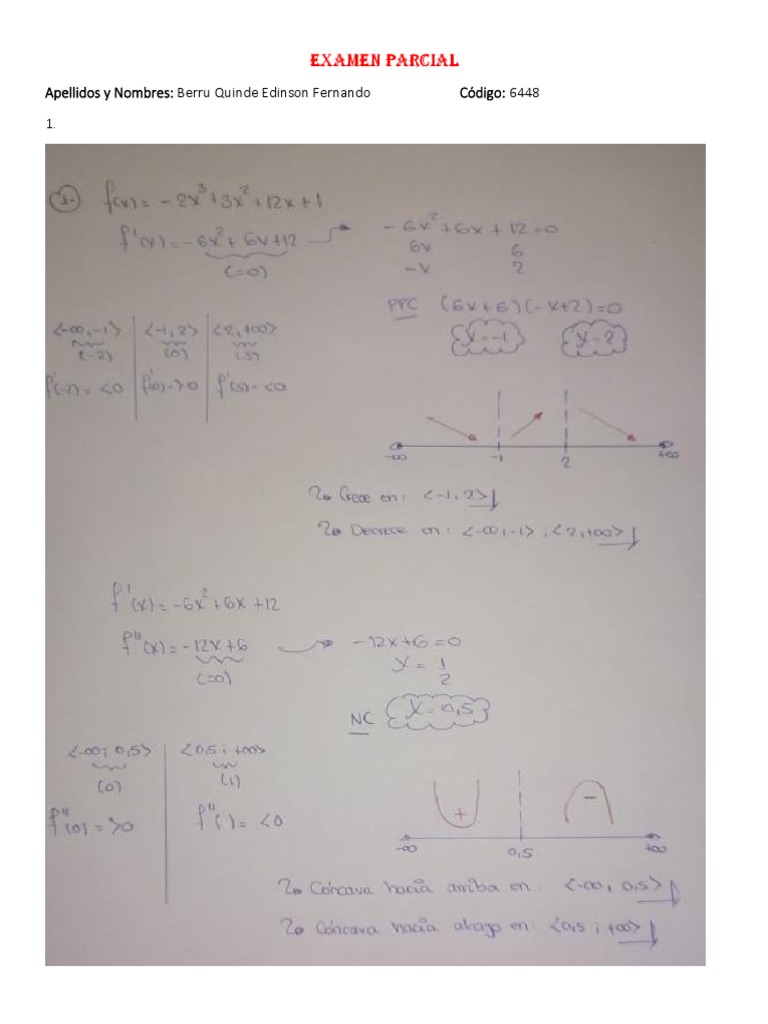 EXAMEN PARCIAL
Apellidos y Nombres: Berru Quinde Edinson Fernando Código: 6448
1.
f(x) = -2x³+3x²+12x+1
f'(x) = -6x²+6x+12
(=0)
-6x²+6x+12=0
6x 6
-x 2
PPC (6x+6)(-x+2)=0
x=-1 x=2
<-∞,-1> <-1,2> <2,+∞>
(-2) (0) (3)
f'(-2) = <0 f'(0) = >0 f'(3) = <0
-∞ -1 2 +∞
Crece en: <-1,2>
Decrece en: <-∞,-1> ; <2,+∞>
f'(x) = -6x²+6x+12
f''(x) = -12x+6
(=0)
-12x+6=0
x = 1
2
NC x=0,5
<-∞; 0,5> <0,5; +∞>
(0) (1)
f''(0) = >0 f''( ) = <0
+ -
-∞ 0,5 +∞
Cóncava hacia arriba en: <-∞, 0,5>
Cóncava hacia abajo en: <0,5; +∞>